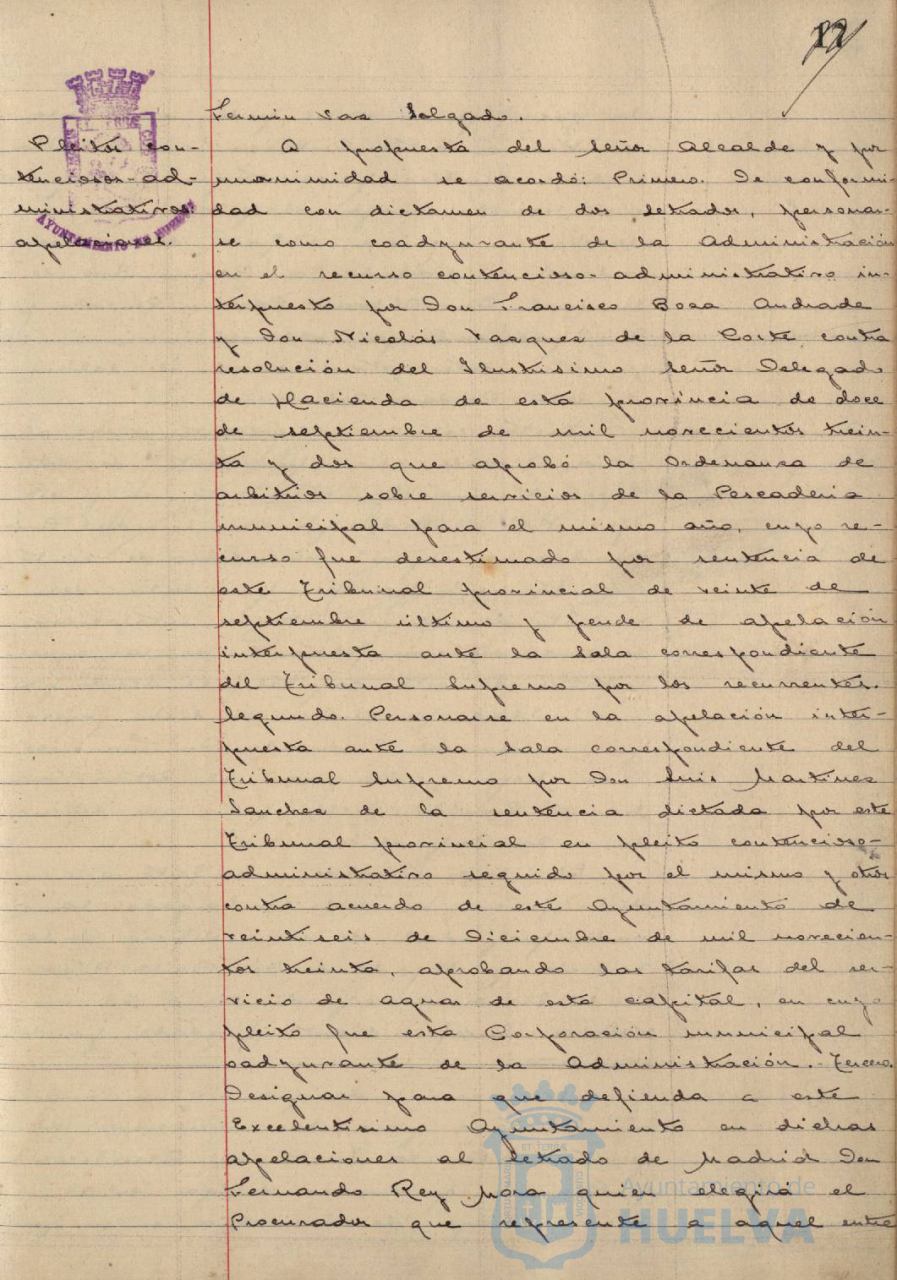 Fermin Vaz Salgado.
Pleitos con-
tenciosos-ad-
ministrativos:
apelaciones.
A propuesta del señor Alcalde y por
unanimidad se acordó: Primero. De conformi-
dad con dictamen de dos letrados, personar-
se como coadyuvante de la Administración
en el recurso contencioso-administrativo in-
terpuesto por Don Francisco Boza Andrade
y Don Nicolás Vazquez de la Corte contra
resolución del Ilustrisimo señor Delegado
de Hacienda de esta provincia de doce
de septiembre de mil novecientos trein-
ta y dos que aprobó la Ordenanza de
arbitrios sobre servicios de la Pescaderia
municipal para el mismo año, cuyo re-
curso fue desestimado por sentencia de
este Tribunal provincial de veinte de
septiembre último y pende de apelación
interpuesta ante la Sala correspondiente
del Tribunal Supremo por los recurrentes.
Segundo. Personarse en la apelación inter-
puesta ante la Sala correspondiente del
Tribunal Supremo por Don Luis Martinez
Sanchez de la sentencia dictada por este
Tribunal provincial en pleito contencioso-
administrativo seguido por el mismo y otros
contra acuerdo de este Ayuntamiento de
veintiseis de Diciembre de mil novecien-
tos treinta, aprobando las tarifas del ser-
vicio de aguas de esta capital, en cuyo
pleito fue esta Corporación municipal
coadyuvante de la Administración.- Tercero.
Designar para que defienda a este
Excelentisimo Ayuntamiento en dichas
apelaciones al letrado de Madrid Don
Fernando Rey Mora quien elegirá el
Procurador que represente a aquel entre
Ayuntamiento de
HUELVA